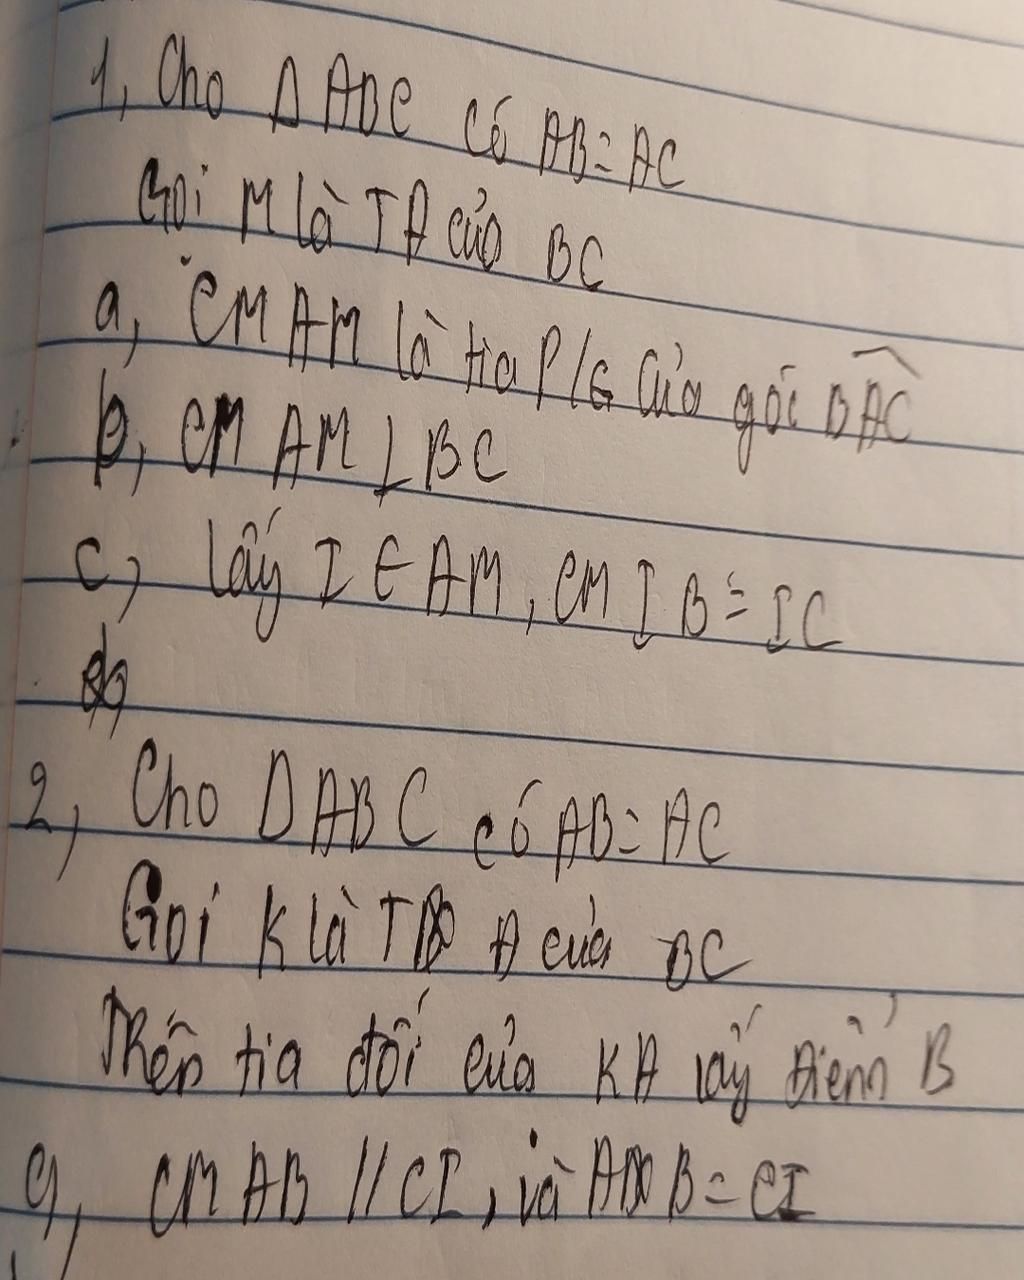 1, Cho Δ ABC có AB = AC
Gọi M là TĐ của BC
a, CM AM là tia P/G của góc BAC
b, CM AM ⊥ BC
c, lấy I ∈ AM, CM IB = IC
2, Cho Δ ABC có AB = AC
Gọi K là TĐ của BC
Trên tia đối của KA lấy điểm B
a, CM AB // CI, và AB = CI